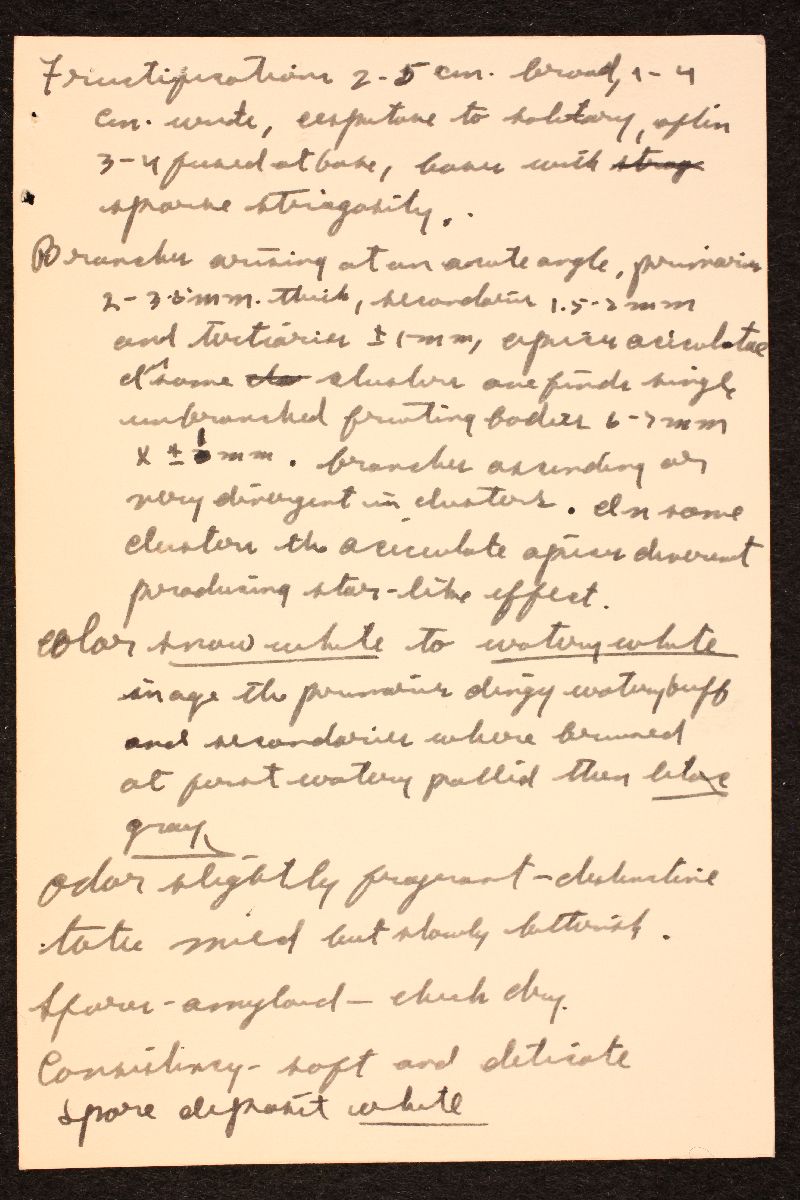 Fructifications 2-5 cm. broad, 1-4
cm. wide, cespitose to solitary, often
3-4 fused at base, bases with strig
sparse strigosity.
Branches arising at an acute angle, primaries
2-3.5 mm. thick, secondaries 1.5-2 mm
and tertiaries ± 1 mm, apices aciculatae
In some clusters one finds single
unbranched fruiting bodies 6-7 mm
X ± 1 mm. branches ascending or
very divergent in clusters. In some
clusters the aciculate apices divericat
producing star-like effect.
Color snow white to watery white
in age the primaries dingy watery buff
and secondaries where bruised
at first watery pallid then lilac
gray
Odor slightly fragrant - distinctive
taste mild but slowly bitterish.
Spores - amyloid - check dry.
Consistency - soft and delicate
Spore deposit white